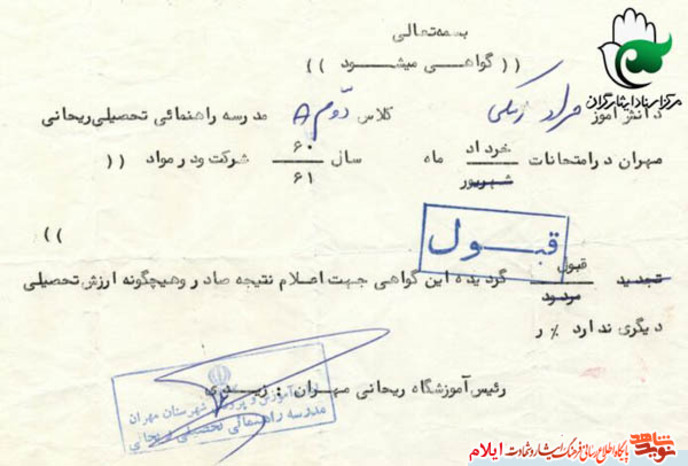 بسمه تعالی
( ( گواهـــی میشــــود ) )
مرکز اسناد ایثارگران
دانش آموز مراد کلاس دوّم A مدرسه راهنمائی تحصیلی ریحانی
مهران در امتحانات خرداد / شهریور ماه سال ۶۰ / ۶۱ شرکت و در مواد ( (
) )
قبـــول
تجدید قبول / مردود گردیده این گواهی جهت اعلام نتیجه صادر و هیچگونه ارزش تحصیلی
دیگری ندارد ٪ ر
رئیس آموزشگاه ریحانی مهـران :
آموزش و پرورش شهرستان مهران
مدرسه راهنمائی تحصیلی ریحانی
نوید شاهد پایگاه اطلاع رسانی فرهنگ ایثار و شهادت ایلام